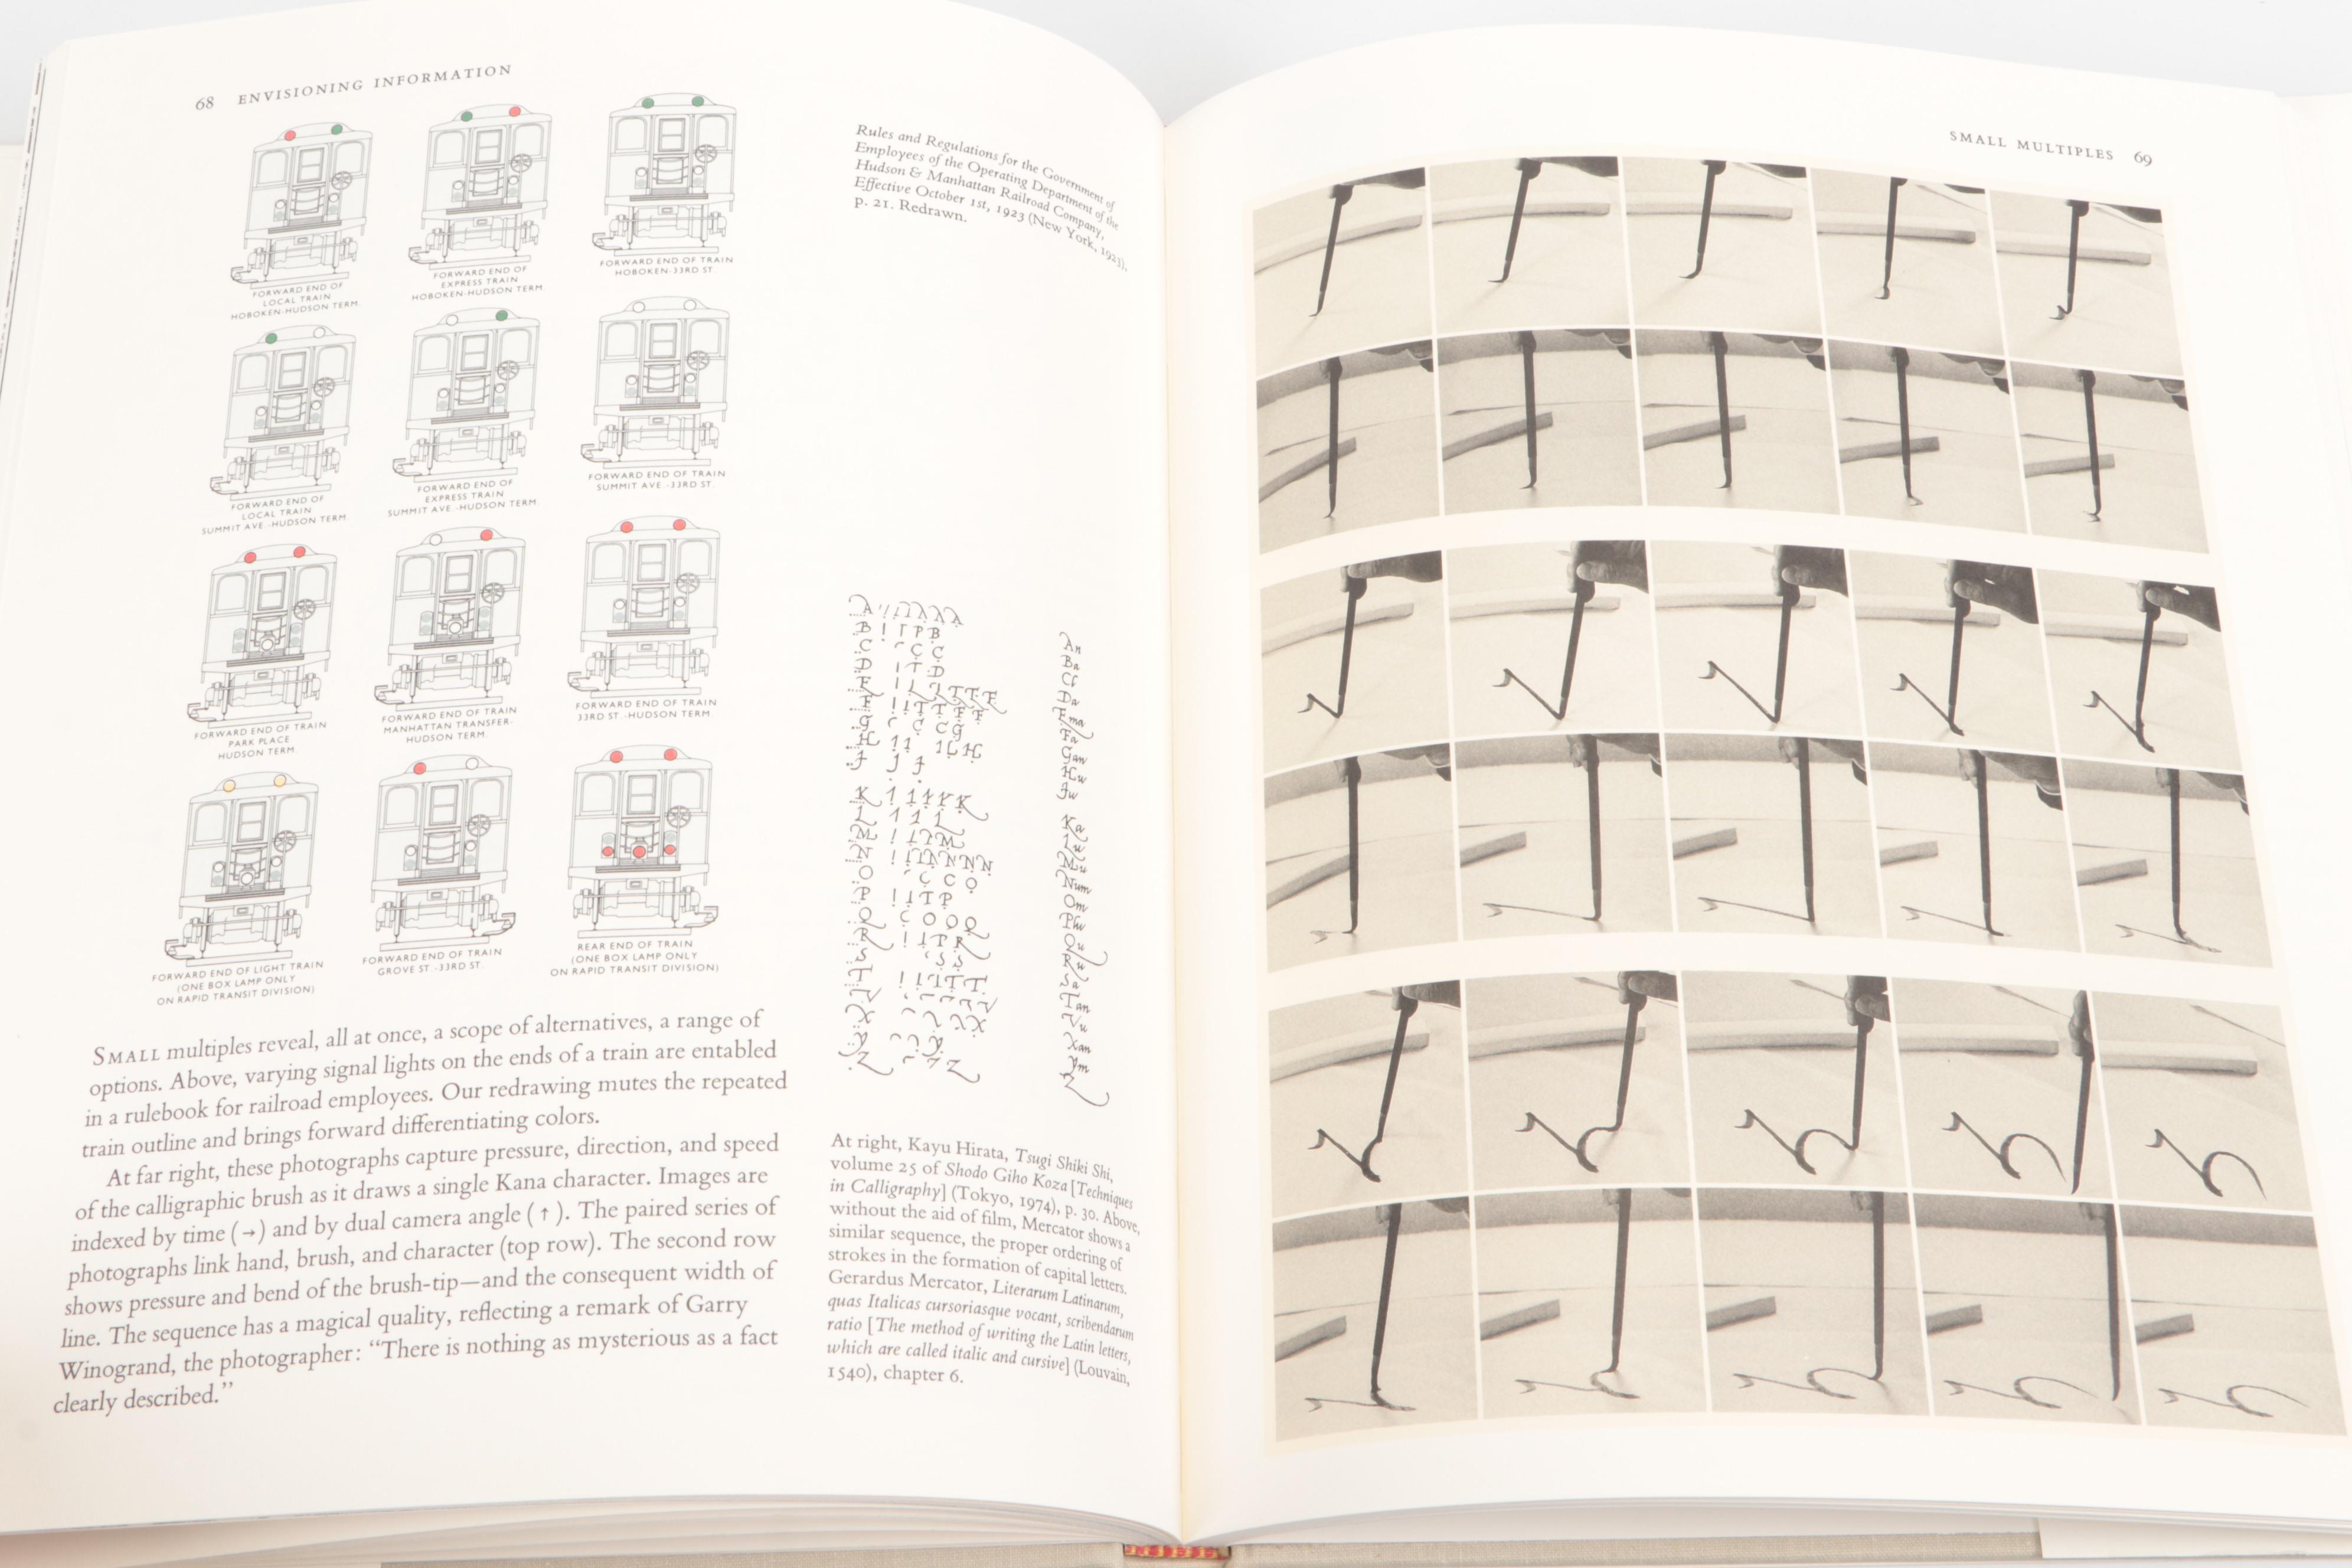 68 ENVISIONING INFORMATION
FORWARD END OF
LOCAL TRAIN
HOBOKEN-HUDSON TERM.
FORWARD END OF
EXPRESS TRAIN
HOBOKEN-HUDSON TERM.
FORWARD END OF TRAIN
HOBOKEN-33RD ST.
FORWARD END OF
LOCAL TRAIN
SUMMIT AVE.-HUDSON TERM.
FORWARD END OF
EXPRESS TRAIN
SUMMIT AVE.-HUDSON TERM.
FORWARD END OF TRAIN
SUMMIT AVE.-33RD ST.
FORWARD END OF TRAIN
PARK PLACE
HUDSON TERM.
FORWARD END OF TRAIN
MANHATTAN TRANSFER-
HUDSON TERM.
FORWARD END OF TRAIN
33RD ST.-HUDSON TERM.
FORWARD END OF LIGHT TRAIN
(ONE BOX LAMP ONLY
ON RAPID TRANSIT DIVISION)
FORWARD END OF TRAIN
GROVE ST.-33RD ST.
REAR END OF TRAIN
(ONE BOX LAMP ONLY
ON RAPID TRANSIT DIVISION)
SMALL multiples reveal, all at once, a scope of alternatives, a range of
options. Above, varying signal lights on the ends of a train are entabled
in a rulebook for railroad employees. Our redrawing mutes the repeated
train outline and brings forward differentiating colors.
At far right, these photographs capture pressure, direction, and speed
of the calligraphic brush as it draws a single Kana character. Images are
indexed by time (→) and by dual camera angle (↑). The paired series of
photographs link hand, brush, and character (top row). The second row
shows pressure and bend of the brush-tip—and the consequent width of
line. The sequence has a magical quality, reflecting a remark of Garry
Winogrand, the photographer: “There is nothing as mysterious as a fact
clearly described.”
Rules and Regulations for the Government of
Employees of the Operating Department of the
Hudson & Manhattan Railroad Company,
Effective October 1st, 1923 (New York, 1923),
p. 21. Redrawn.
An
Ba
Da
Ema
Fa
Gaw
Hw
Ka
Mu
Num
Om
Phi
Qu
Ru
Sa
Tan
Vu
Xan
Ym
Z
At right, Kayu Hirata, Tsugi Shiki Shi,
volume 25 of Shodo Giho Koza [Techniques
in Calligraphy] (Tokyo, 1974), p. 30. Above,
without the aid of film, Mercator shows a
similar sequence, the proper ordering of
strokes in the formation of capital letters.
Gerardus Mercator, Literarum Latinarum,
quas Italicas cursoriasque vocant, scribendarum
ratio [The method of writing the Latin letters,
which are called italic and cursive] (Louvain,
1540), chapter 6.
SMALL MULTIPLES 69